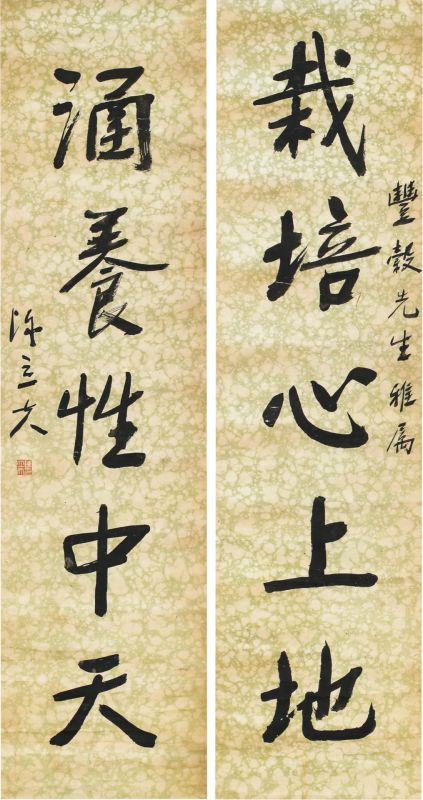 豐穀先生雅屬
栽培心上地
涵養性中天
陳立夫